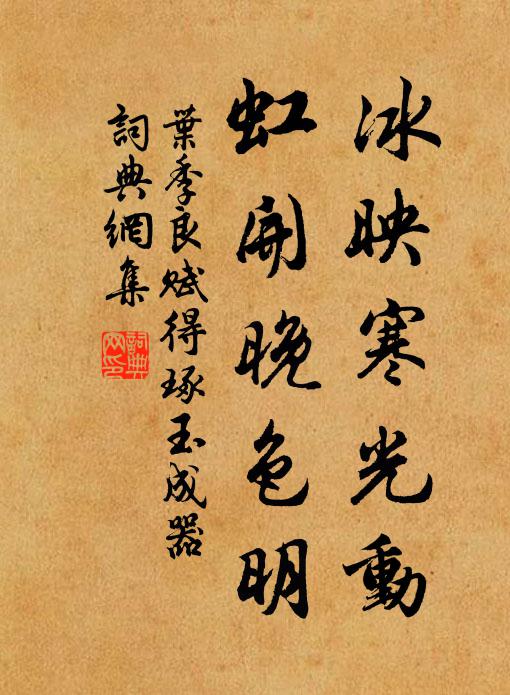 冰映寒光動
虹開晚色明
葉季良賦得琢玉成器
詞典網集
詞典網印